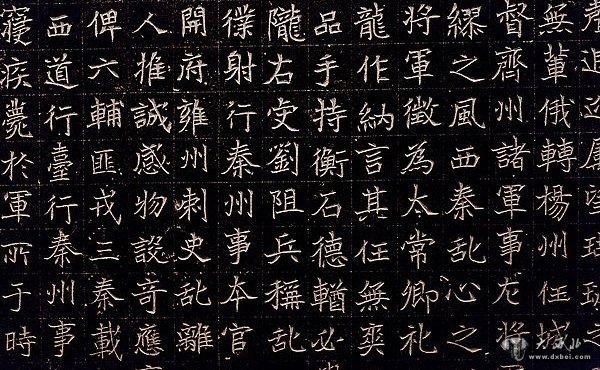 追望之
無輩俄轉楊州任城
督齊州諸軍事左將
繆之風西秦乱心之
將軍徵為太常卿礼
龍作納言其任無爽
品手持衡石德輶必
隴右劉阻兵稱乱
僕射行秦州事本官
開府雍州刺史乱離
人推誠感物設奇應
俾六輔匪戎三秦載
西道行臺行秦州事
寢疾薨於軍所于時
www.dxbei.com